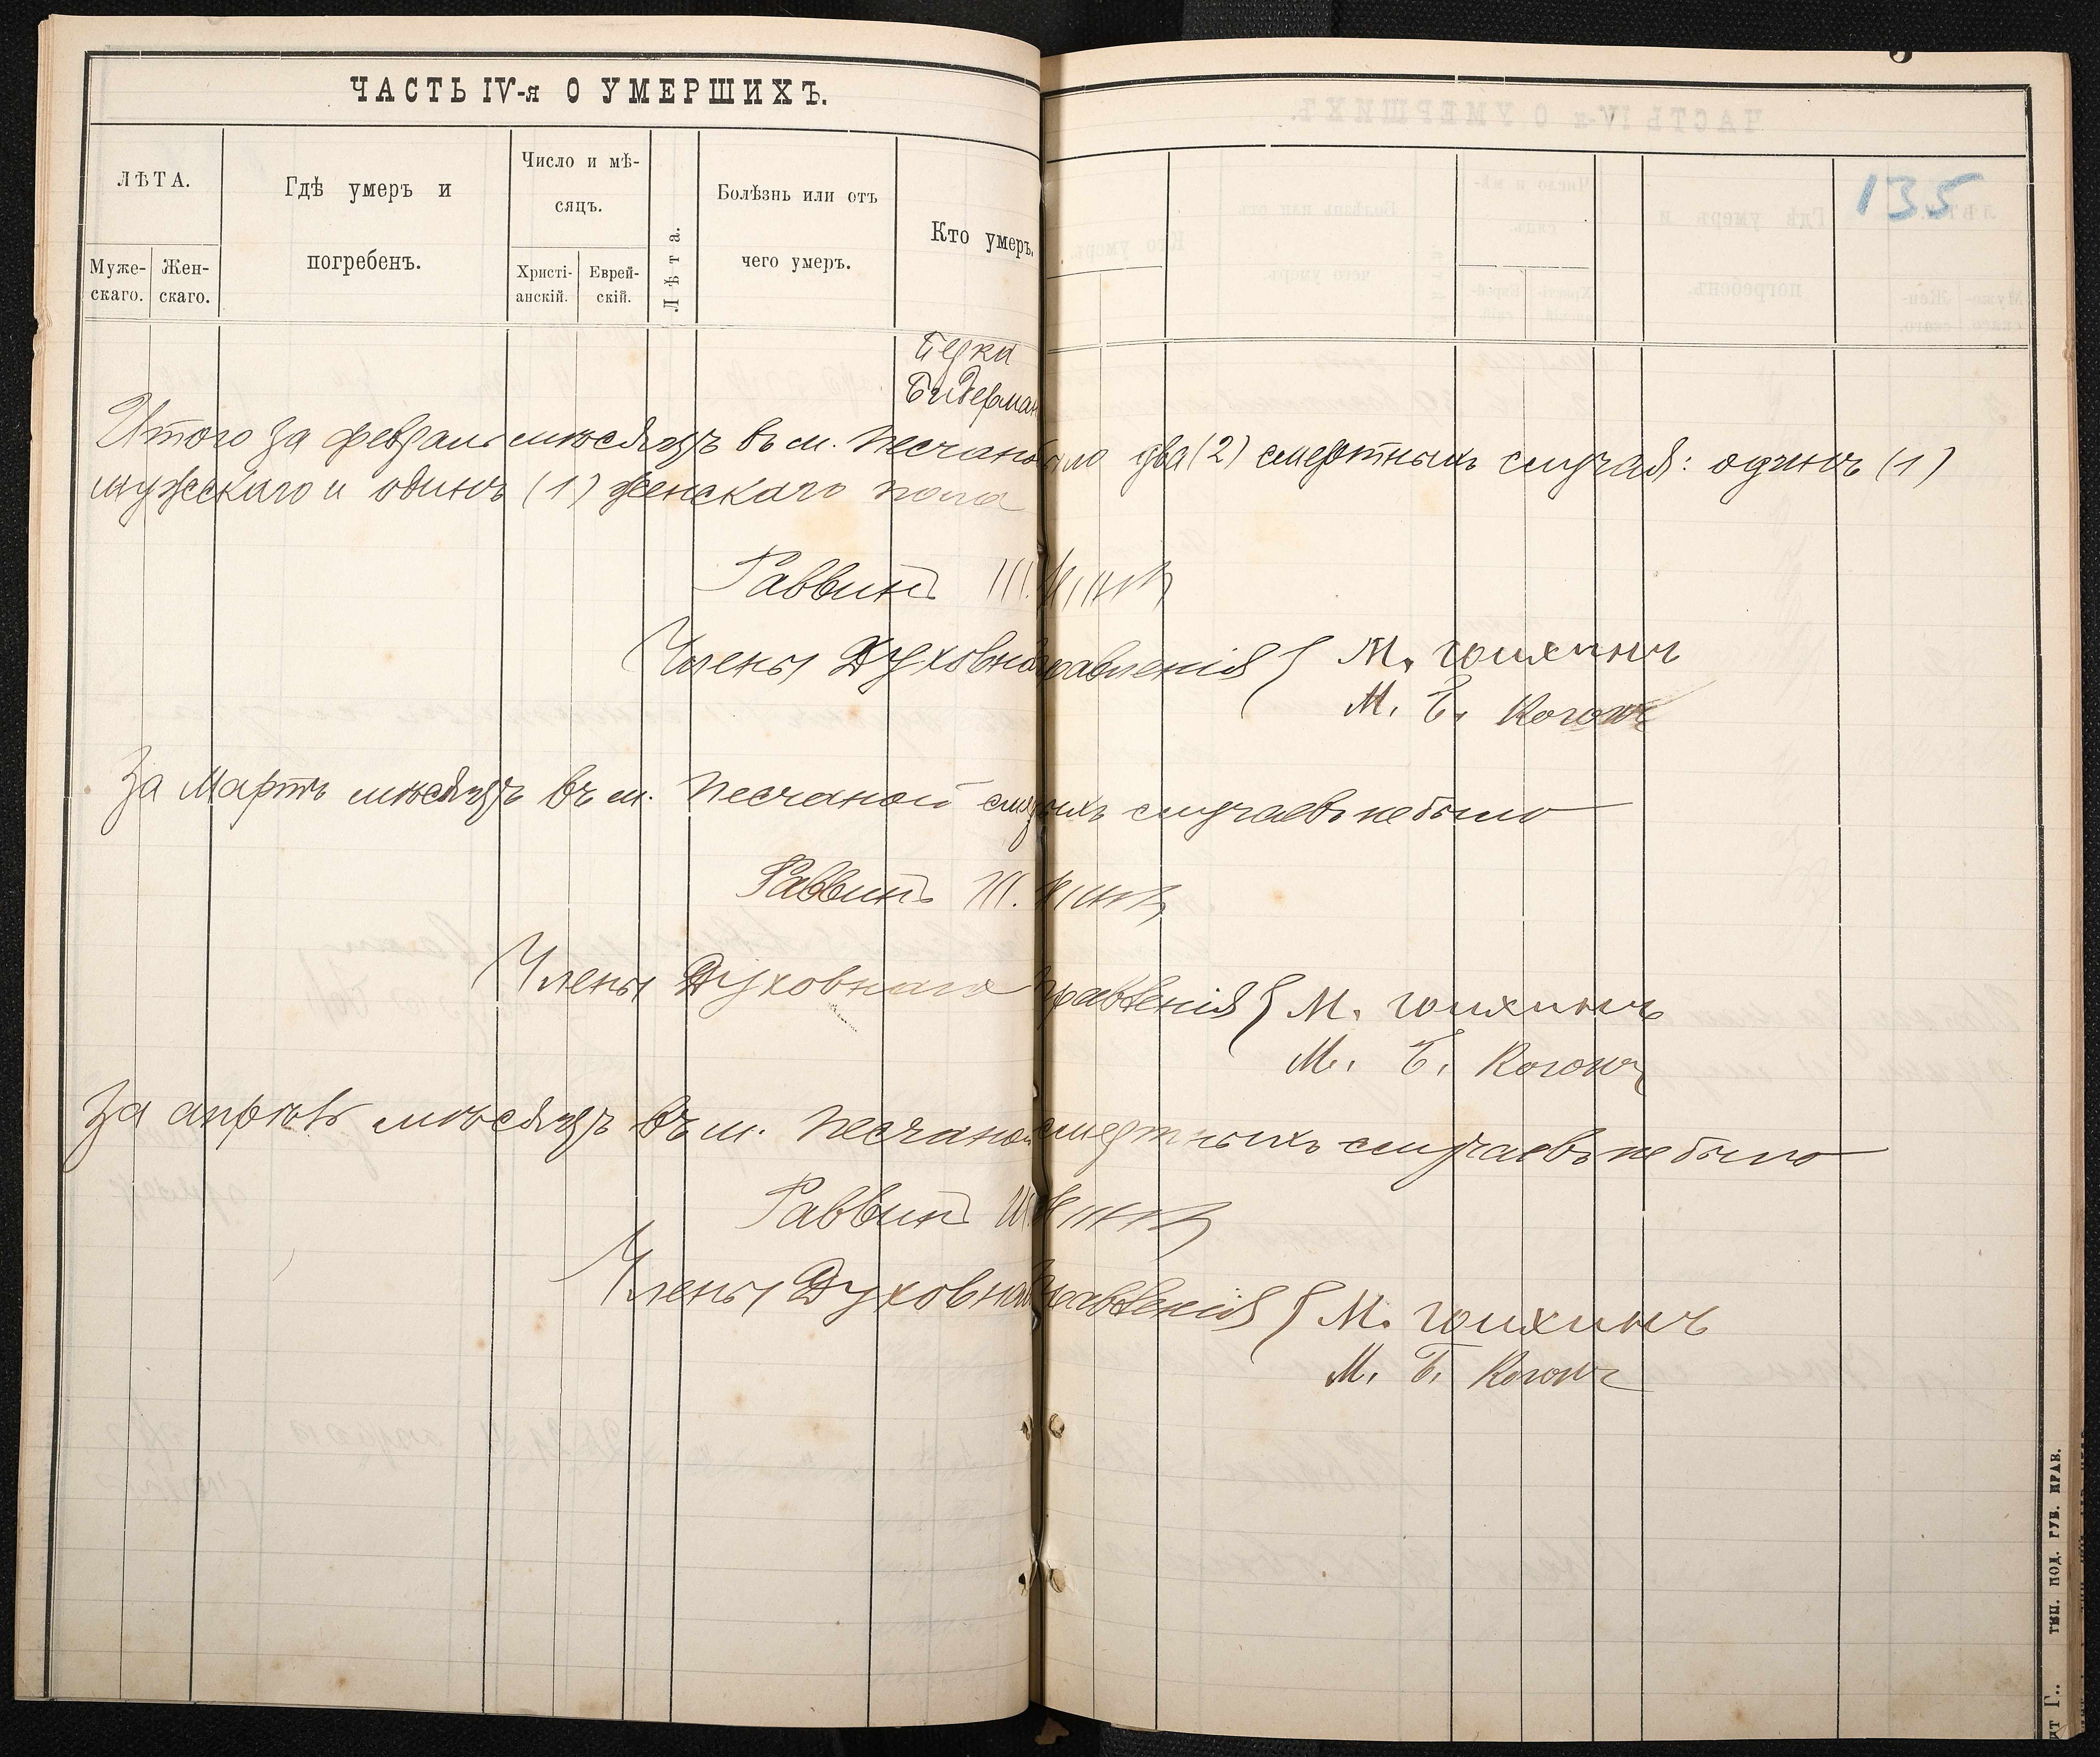 ЧАСТЬ IV-я О УМЕРШИХЪ.
135
ЛѢТА.
Муже-
скаго.
Жен-
скаго.
Гдѣ умеръ и
погребенъ.
Число и мѣ-
сяцъ.
Христі-
анскій.
Еврей-
скій.
Лѣта.
Болѣзнь или отъ
чего умеръ.
Кто умеръ.
Бидерман
Итого за февраль мѣсяцъ въ м. Песчано было два (2) смертныхъ случая: одинъ (1)
мужскаго и одинъ (1) женскаго пола
Раввинъ Ш.
Члены Духовна правленія { М. Гоихинъ
М. Б. Когонъ
За Мартъ мѣсяцъ въ м. Песчаной случаевъ не было
Раввинъ Ш.
Члены Духовнаго Правленія { М. Гоихинъ
М. Б. Когонъ
За апрѣль мѣсяцъ въ м. Песчаной смертныхъ случаевъ не было
Раввинъ Ш.
Члены Духовна Правленія { М. Гоихинъ
М. Б. Когонъ
ТИП. ПОД. ГУБ. ПРАВ.